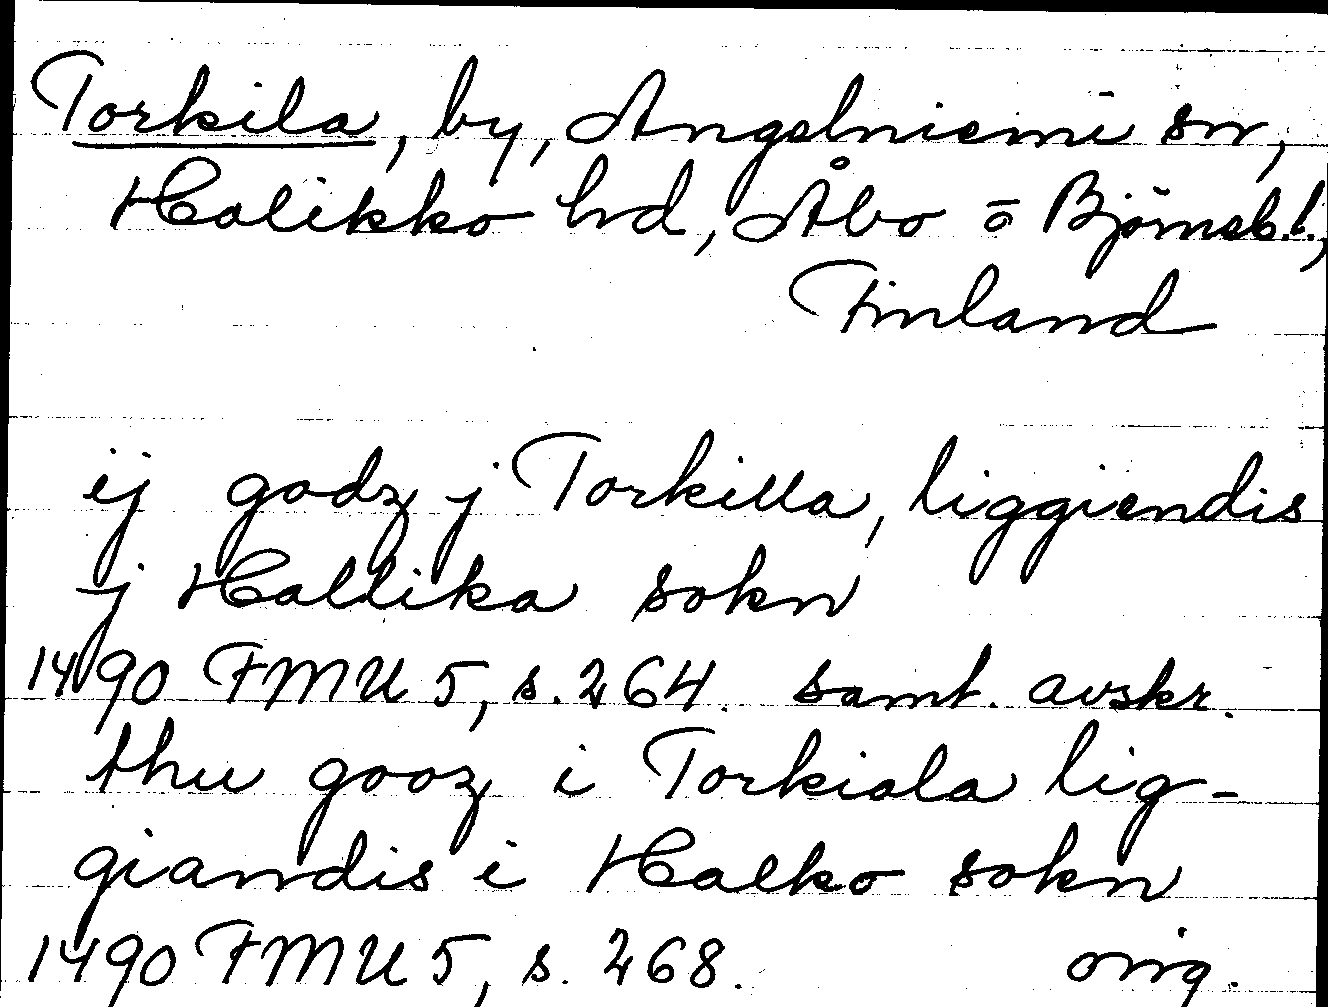 Torkila, by, Angelniemi sn,
Halikko hd, Åbo o Björneb.l.,
Finland
ij godz j Torkilla, liggiendis
j Hallika sokn
1490 FMU 5, s. 264. samt. avskr.
thu gooz i Torkiala lig-
giandis i Halko sokn
1490 FMU 5, s. 268. orig.